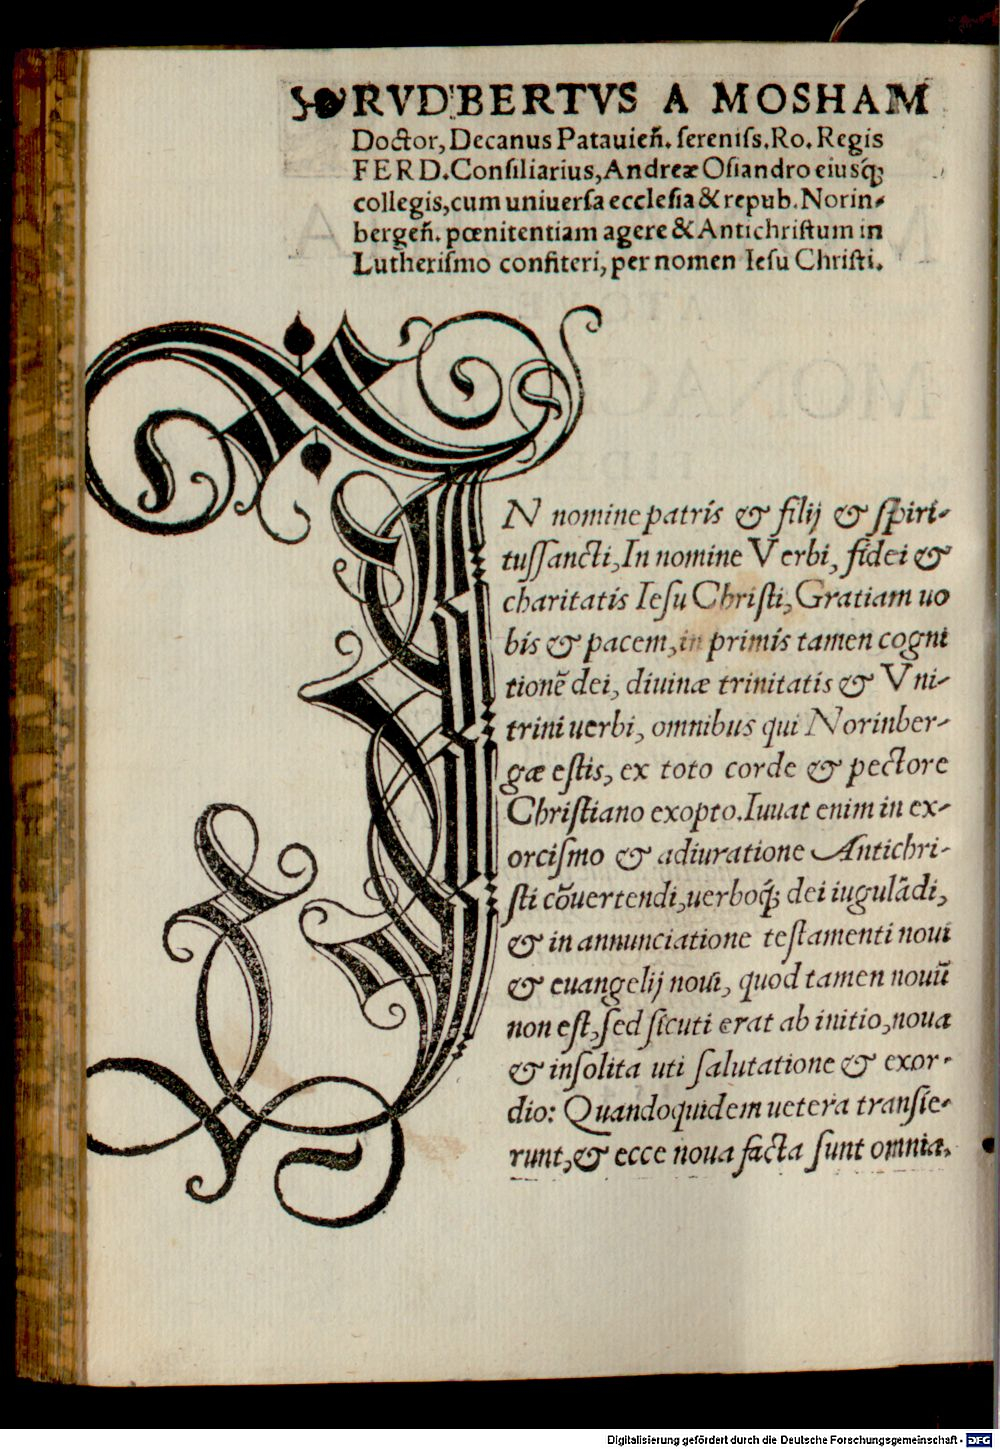 RVDBERTVS A MOSHAM
Doctor, Decanus Patauieñ. sereniſs. Ro. Regis
FERD. Conſiliarius, Andreæ Oſiandro eiusq́;
collegis, cum uniuerſa eccleſia & repub. Norin-
bergeñ. pœnitentiam agere & Antichriſtum in
Lutheriſmo confiteri, per nomen Ieſu Chriſti.
IN nomine patris & filij & ſpiri-
tuſſancti, In nomine Verbi, fidei &
charitatis Ieſu Chriſti, Gratiam uo
bis & pacem, in primis tamen cogni
tionē dei, diuinæ trinitatis & Vni-
trini uerbi, omnibus qui Norinber-
gæ eſtis, ex toto corde & pectore
Chriſtiano exopto. Iuuat enim in ex-
orciſmo & adiuratione Antichri-
ſti cōuertendi, uerboq́; dei iugulādi,
& in annunciatione teſtamenti noui
& euangelij noui, quod tamen nouū
non eſt, ſed ſicuti erat ab initio, noua
& inſolita uti ſalutatione & exor-
dio: Quandoquidem uetera tranſie-
runt, & ecce noua facta ſunt omnia.
Digitalisierung gefördert durch die Deutsche Forschungsgemeinschaft - DFG